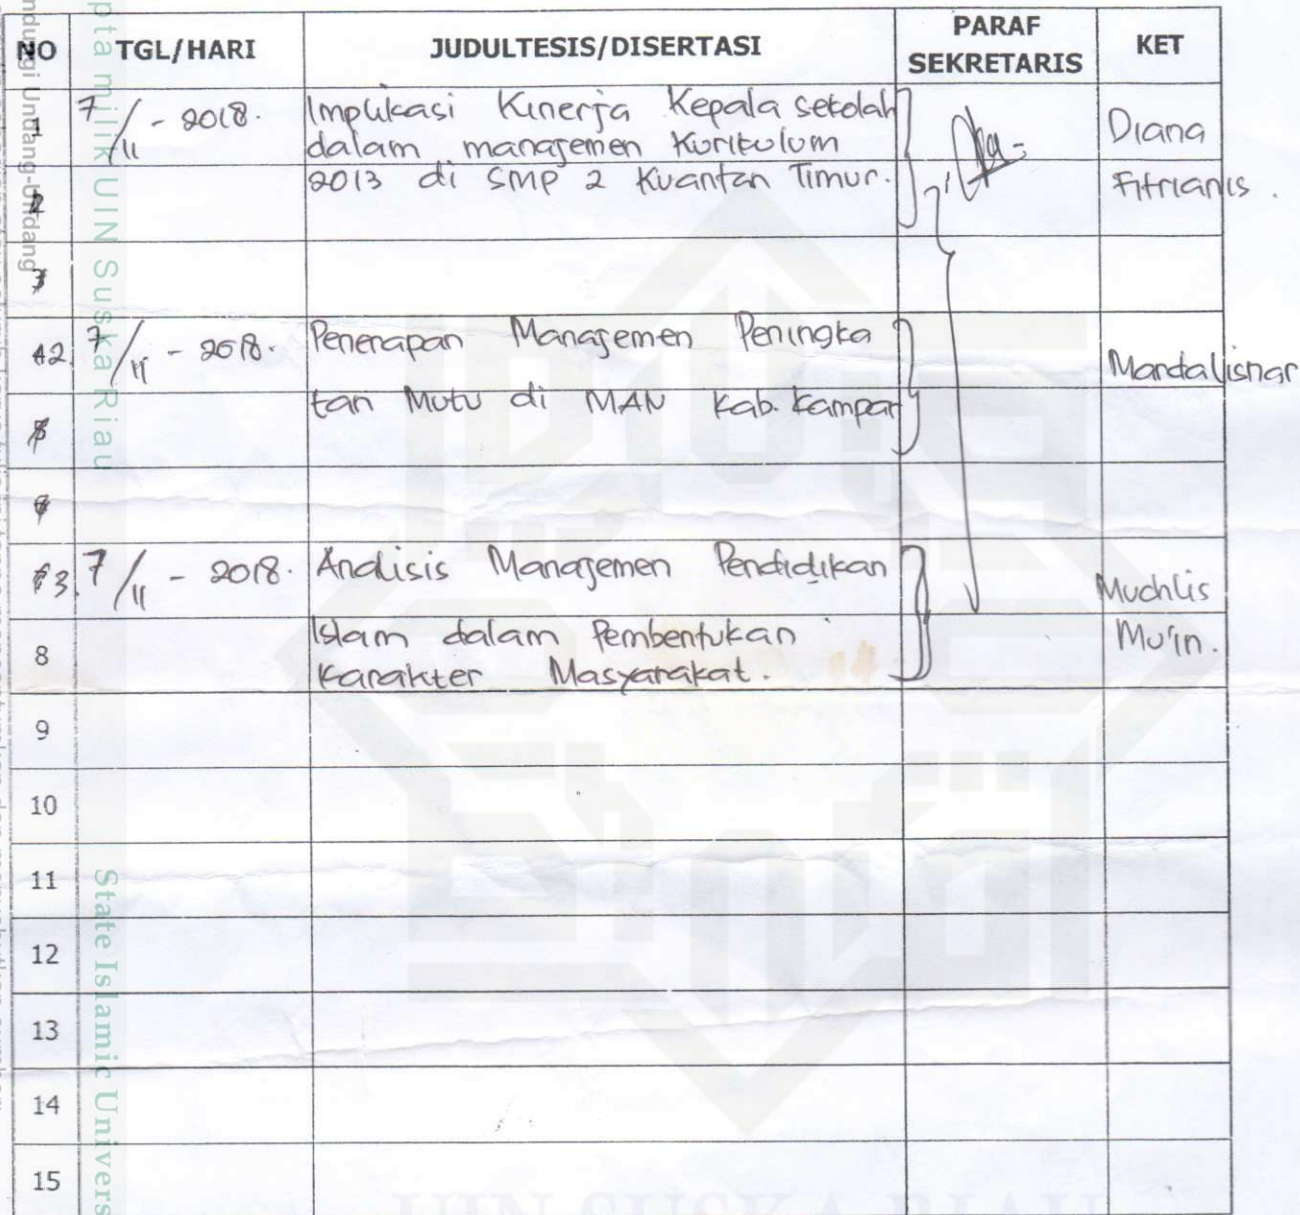 NO TGL/HARI JUDULTESIS/DISERTASI PARAF SEKRETARIS KET
1 7/11 - 2018. Implikasi Kinerja Kepala sekolah Diana
dalam manajemen Kurikulum
2 2013 di SMP 2 Kuantan Timur. Fitrianis.
3
42. 7/11 - 2018. Penerapan Manajemen Peningka Mardalisnar
5 tan Mutu di MAN Kab. Kampar
6
73. 7/11 - 2018. Analisis Manajemen Pendidikan Muchlis
8 Islam dalam Pembentukan Mu'in.
Karakter Masyarakat.
9
10
11
12
13
14
15
pta milik UIN Suska Riau
State Islamic Univers
ndungi Undang-Undang
UIN SUSKA RIAU